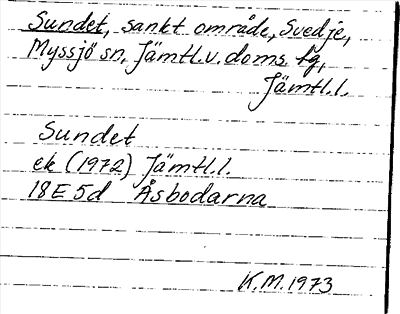 Sundet, sankt område, Svedje,
Myssjö sn. Jämtl.v. doms. tg,
Jämtl.l.
Sundet
ek (1972) Jämtl.l.
18E 5d Åsbodarna
K.M. 1973